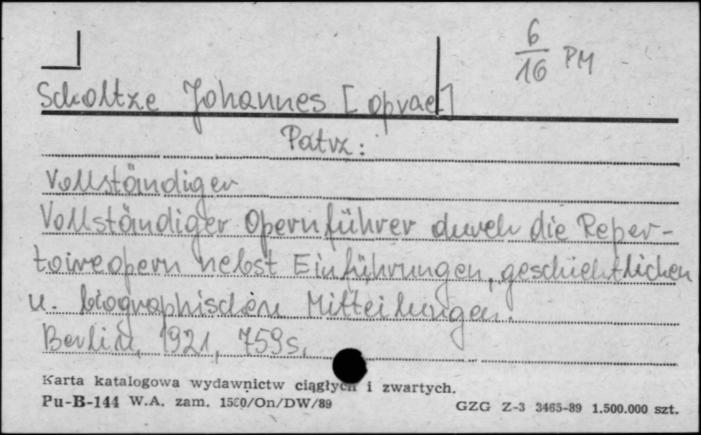 6
16 PM
Scholtze Johannes [oprac]
Patrz:
Vollständiger
Vollständiger Opernführer durch die Reper-
toireopern nebst Einführungen, geschichtlichen
u. biographischen Mitteilungen.
Berlin, 1921, 759s.
Karta katalogowa wydawnictw ciągłych i zwartych.
Pu-B-144 W.A. zam. 1580/On/DW/89
GZG Z-3 3465-89 1.500.000 szt.